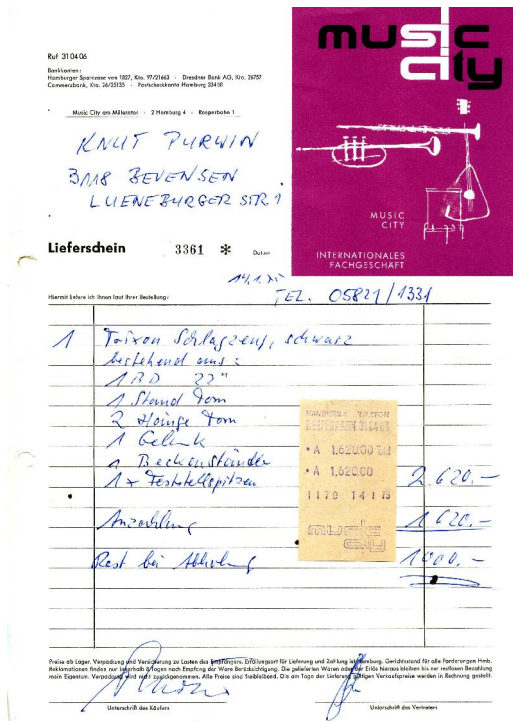 music
city
Ruf 31 04 06
Bankkonten:
Hamburger Sparcasse von 1827, Kto. 97/21663 · Dresdner Bank AG, Kto. 26757
Commerzbank, Kto. 26/25135 · Postscheckkonto Hamburg 334 58
Music City am Millerntor · 2 Hamburg 4 · Reeperbahn 1
KNUT PURWIN
3118 BEVENSEN
LUENEBURGER STR 1
MUSIC
CITY
INTERNATIONALES
FACHGESCHÄFT
Lieferschein 3361 * Datum
14.1.75
TEL. 05821/1331
Hiermit liefere ich Ihnen laut Ihrer Bestellung:
1 Trixon Schlagzeug, schwarz
bestehend aus:
1 BD 22"
1 Stand Tom
2 Hänge Tom
1 Gelenk
1 Beckenständer
1 x Feststellspitzen 2.620.-
HAMBURG 4 TELEFON
REEPERBAHN 1 31 04 06
• A 1,620.00
• A 1,620.00
1179 14 1 75
music
city
Anzahlung 1620.-
Rest bei Abholung 1000.-
Preise ab Lager. Verpackung und Versicherung zu Lasten des Empfängers. Erfüllungsort für Lieferung und Zahlung ist Hamburg. Gerichtsstand für alle Forderungen Hmb.
Reklamationen finden nur innerhalb 8 Tagen nach Empfang der Ware Berücksichtigung. Die gelieferten Waren oder der Erlös hieraus bleiben bis zur restlosen Bezahlung
mein Eigentum. Verpackung wird nicht zurückgenommen. Alle Preise sind freibleibend. Die am Tage der Lieferung gültigen Verkaufspreise werden in Rechnung gestellt.
Unterschrift des Käufers
Unterschrift des Vertreters